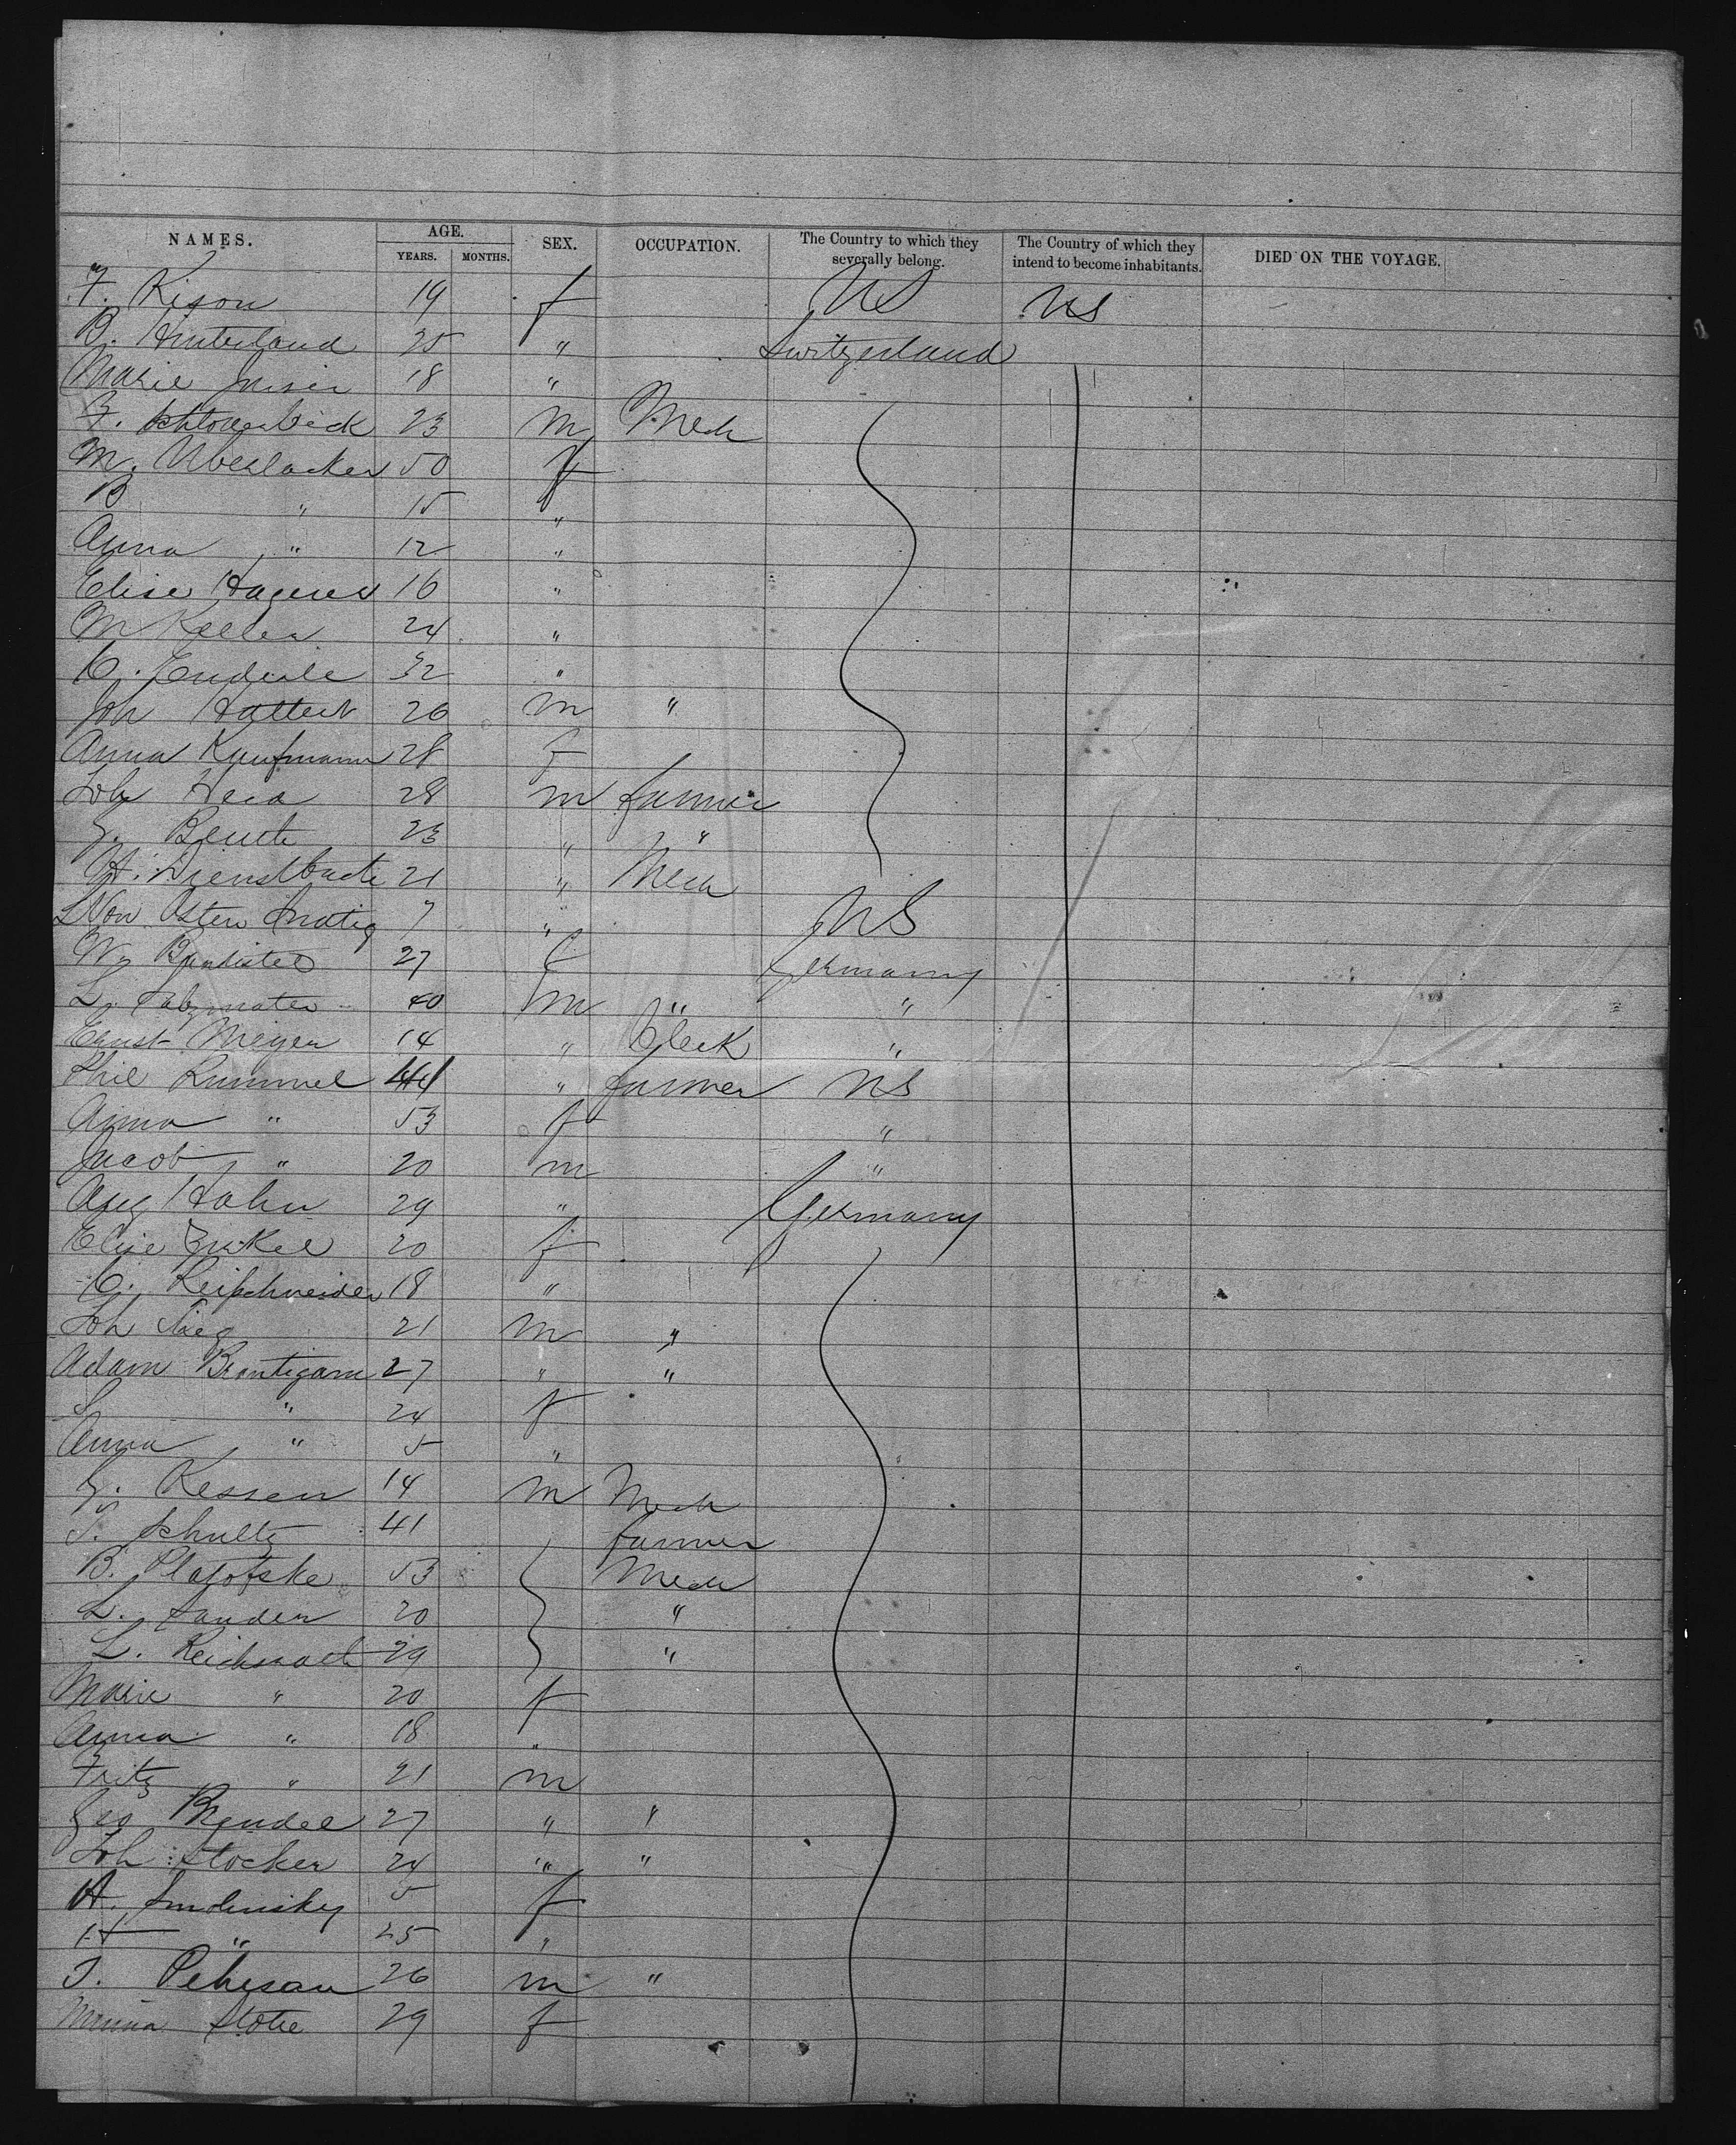 NAMES. AGE. SEX. OCCUPATION. The Country to which they severally belong. The Country of which they intend to become inhabitants. DIED ON THE VOYAGE.
YEARS. MONTHS.
F. Kison 19 f US US
B. Hinterland 25 " Switzerland
Marie 18 "
F. 23 m Mech
M. Uberlacker 50 f
B " 15 "
Anna " 12 "
Elise Hagner 16 "
M Keller 24 "
C. Enderle 32 "
Joh Hattert 26 m "
Anna Kaufmann 28 f
Joh 28 m farmer
G. 23 " "
H. 21 " Mech
L Von Osten 7 " US
W. 27 f Germany
L. 40 m " "
Ernst Meyer 14 " Clerk "
Phil Rummel 44 " farmer US
Anna " 53 f "
Jacob " 20 m "
Aug Hahn 29 " Germany
Elise 20 f
C. Reifschneider 18 "
Joh 21 m "
Adam Brautigam 27 " "
" 24 f
Anna " 5 "
G. Kessen 14 m Mech
T. Schultz 41 farmer
B. Plagofske 53 Mech
L. Sander 20 "
L. 29 "
Marie " 20 f
Anna " 18 "
Fritz " 21 m
Geo Brendel 27 " "
Joh Stocker 24 " "
A. Smolensky 5 f
H " 25 "
26 m "
Minna 29 f